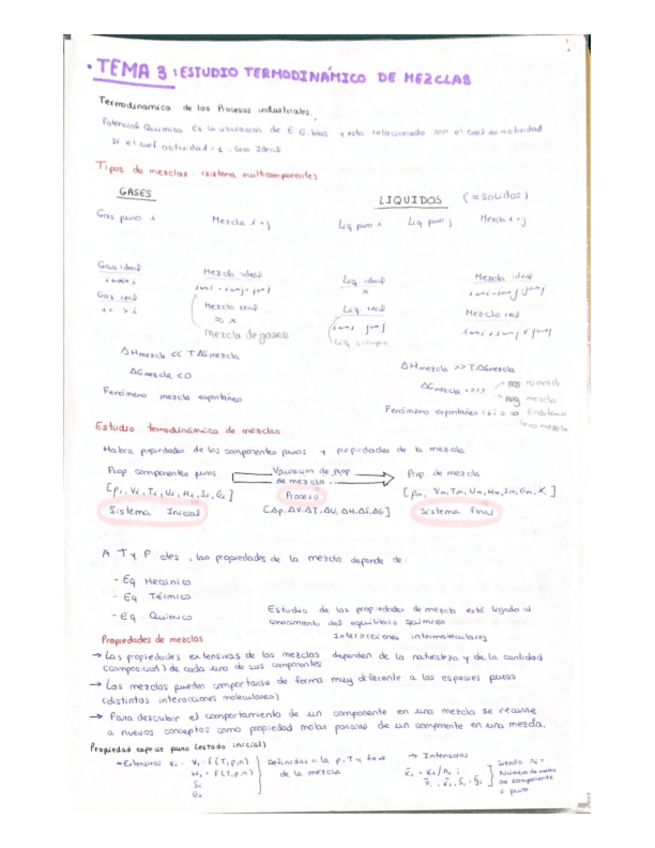 · TEMA 3 : ESTUDIO TERMODINÁMICO DE MEZCLAS
Termodinámica de los Procesos industriales.
Potencial Químico Es la variación de E Gibbs y esta relacionado con el coef de actividad
Si el coef actividad = 1 , Ideal
Tipos de mezclas : (sistema multicomponente)
GASES
LIQUIDOS (≈ SOLIDOS)
Gas puro i
Mezcla i + j
Liq puro i
Liq puro j
Mezcla i + j
Gas ideal
Mezcla ideal
Liq ideal
Mezcla ideal
x
Gas real
Mezcla real
Liq real
Mezcla real
≈ x
mezcla de gases
Liq siempre
ΔHmezcla << TΔSmezcla
ΔHmezcla >> TΔSmezcla
ΔGmezcla <0
ΔGmezcla
pos no mezcla
neg mezcla
Fenómeno mezcla espontáneo
Fenómeno espontáneo
no mezcla
Estudio termodinámico de mezclas
Habra propiedades de los componentes puros y propiedades de la mezcla
Prop componentes puros
Variación de prop de mezcla
Prop. de mezcla
[Pi, Vi, Ti, Ui, Hi, Si, Gi]
Proceso
[Pm, Vm, Tm, Um, Hm, Sm, Gm, Xi]
Sistema Inicial
[Δp, ΔV, ΔT, ΔU, ΔH, ΔS, ΔG]
Sistema final
A T y P ctes , las propiedades de la mezcla depende de:
- Eq Mecánico
- Eq. Térmico
- Eq. Químico
Estudio de las propiedades de mezcla está ligado al
conocimiento del equilibrio químico
Interacciones intermoleculares
Propiedades de mezclas
→ Las propiedades extensivas de las mezclas dependen de la naturaleza y de la cantidad
(composición) de cada uno de sus componentes
→ Las mezclas pueden comportarse de forma muy diferente a las especies puras
(distintas interacciones moleculares)
→ Para descubrir el comportamiento de un componente en una mezcla se recurre
a nuevos conceptos como propiedad molar parcial de un componente en una mezcla.
Propiedad especie pura (estado inicial)
→ Extensivas Ki Vi = f(T,p,n)
Hi = f(T,p,n)
Si
Gi
Definidas a la p, T y fase
de la mezcla
→ Intensivas
Ki = Ki/ni
Siendo ni =
Número de moles
de componente
i puro